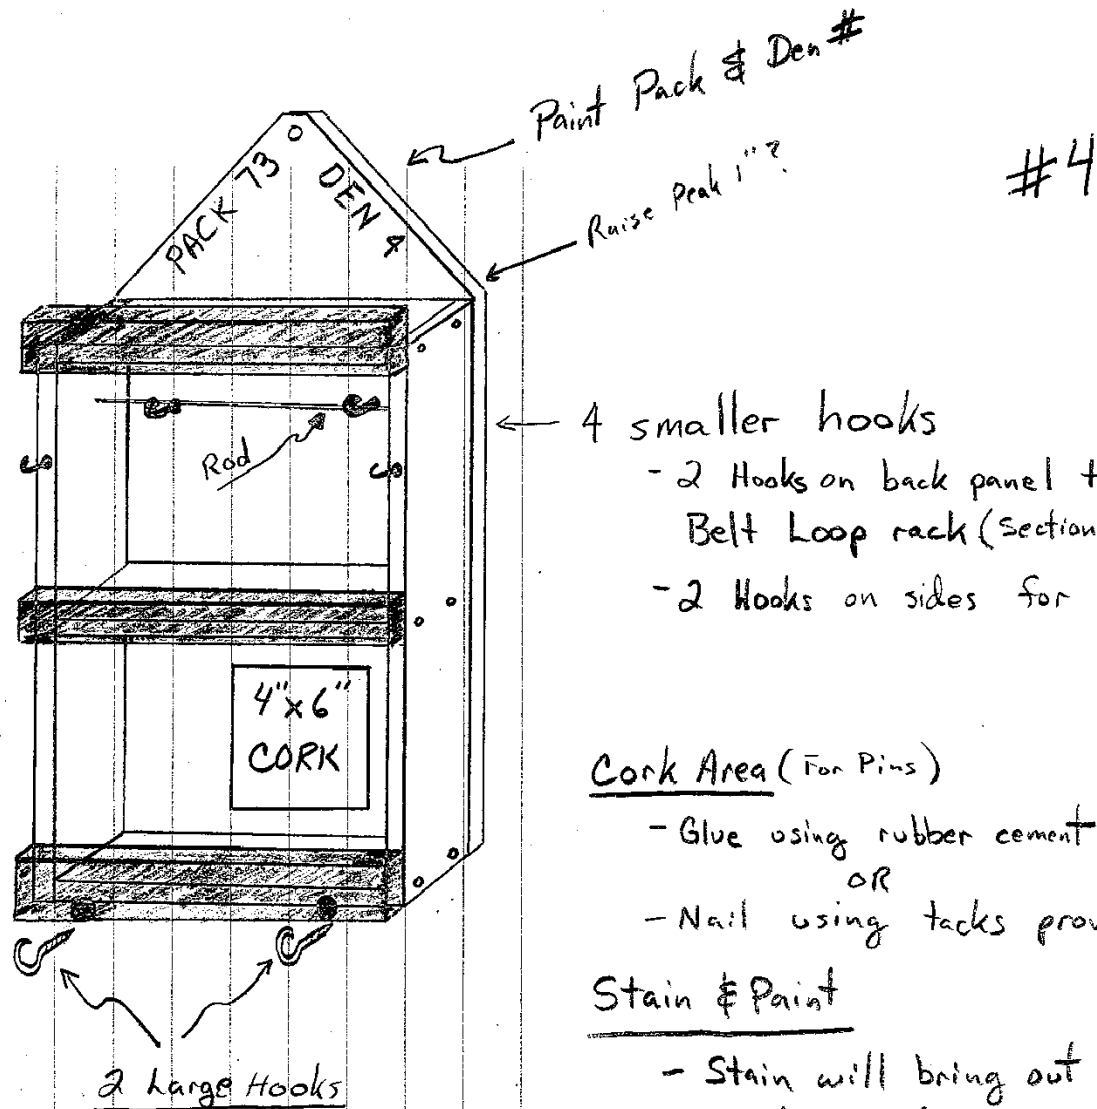 Paint Pack & Den #
#4
Raise Peak 1"?
PACK 73
DEN 4
Rod
4 smaller hooks
- 2 Hooks on back panel t
Belt Loop rack (Section
- 2 Hooks on sides for
4"x6"
CORK
Cork Area (For Pins)
- Glue using rubber cement
OR
- Nail using tacks prov
Stain & Paint
- Stain will bring out
2 Large Hooks